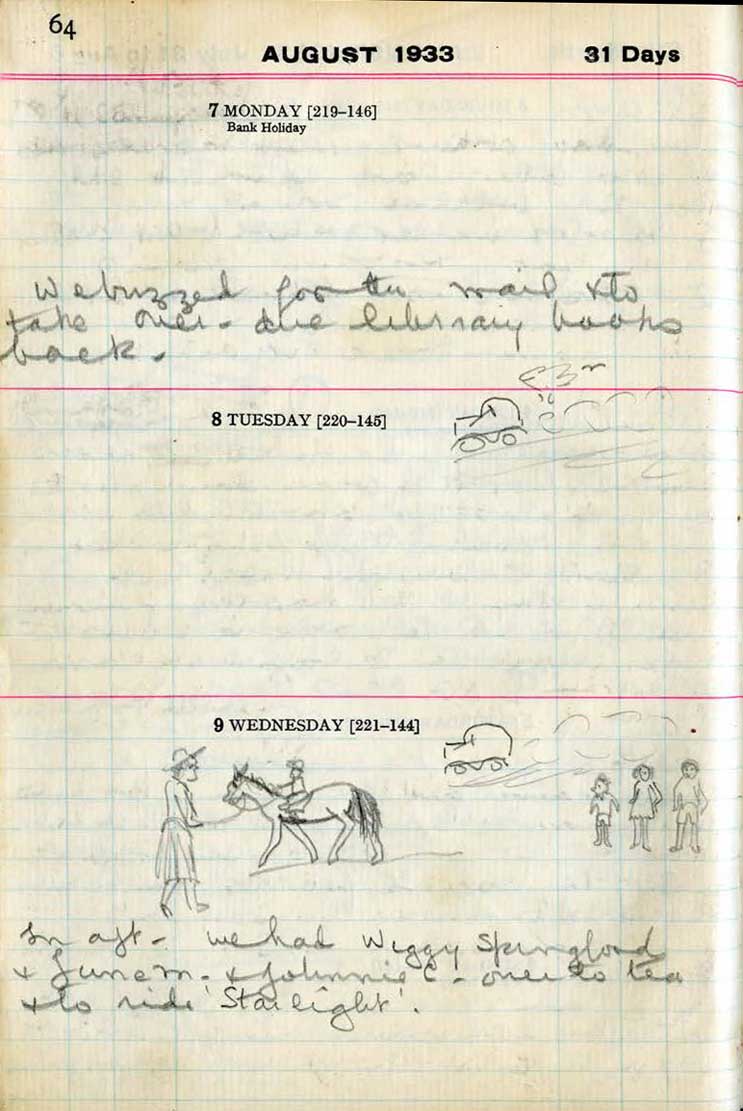 64
AUGUST 1933 31 Days
7 MONDAY [219–146]
Bank Holiday
We buzzed for the mail & to
take over-due library books
back.
8 TUESDAY [220–145]
9 WEDNESDAY [221–144]
In aft- we had Wiggy
& June M. & Johnnie C. over to tea
& to ride 'Starlight'.